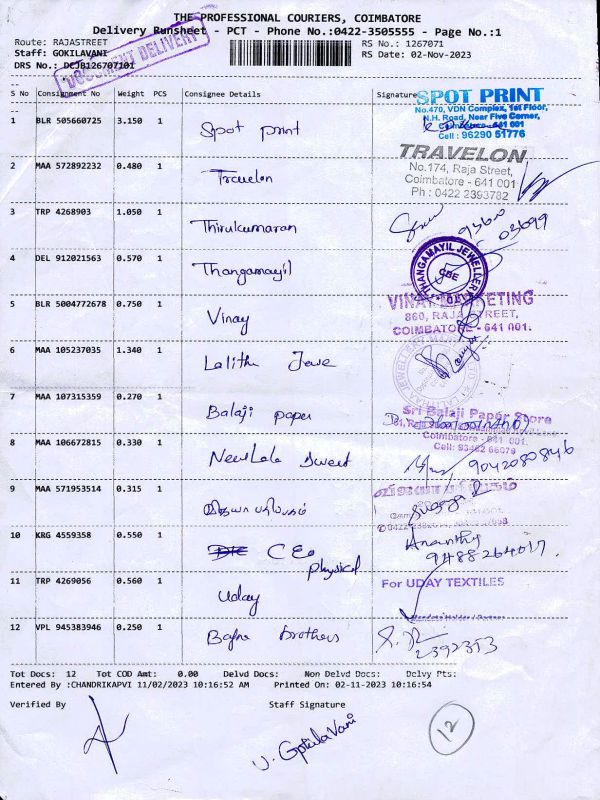 THE PROFESSIONAL COURIERS, COIMBATORE
Delivery Runsheet - PCT - Phone No.:0422-3505555 - Page No.:1
Route: RAJASTREET
RS No.: 1267071
Staff: GOKILAVANI
RS Date: 02-Nov-2023
DRS No.: DCJB126707101
DOCUMENT DELIVERY
S No Consignment No Weight PCS Consignee Details Signature
SPOT PRINT
No.470, VDN Complex, 1st Floor,
N.H. Road, Near Five Corner,
Coimbatore - 641 001
Cell : 96290 51776
1 BLR 505660725 3.150 1 Spot print
TRAVELON
No.174, Raja Street,
Coimbatore - 641 001
Ph : 0422 2393782
2 MAA 572892232 0.480 1 Travelon
3 TRP 4268903 1.050 1 Thirukumaran
03699
4 DEL 912021563 0.570 1 Thangamayil
THANGAMAYIL JEWELLERY LTD
CBE
5 BLR 5004772678 0.750 1 Vinay
VINAY MARKETING
860, RAJA STREET,
COIMBATORE - 641 001.
6 MAA 105237035 1.340 1 Lalitha Jewe
7 MAA 107315359 0.270 1 Balaji paper
Sri Balaji Paper Store
Coimbatore - 641 001.
8 MAA 106672815 0.330 1 New Lala Sweet
9042080846
9 MAA 571953514 0.315 1
10 KRG 4559358 0.550 1 CEO
physical
Ananthy
9488264017.
11 TRP 4269056 0.560 1 Uday
For UDAY TEXTILES
12 VPL 945383946 0.250 1 Bafna brothers
2392353
Tot Docs: 12 Tot COD Amt: 0.00 Delvd Docs: Non Delvd Docs: Delvy Pts:
Entered By :CHANDRIKAPVI 11/02/2023 10:16:52 AM Printed On: 02-11-2023 10:16:54
Verified By Staff Signature
V. Gokila Vani
12